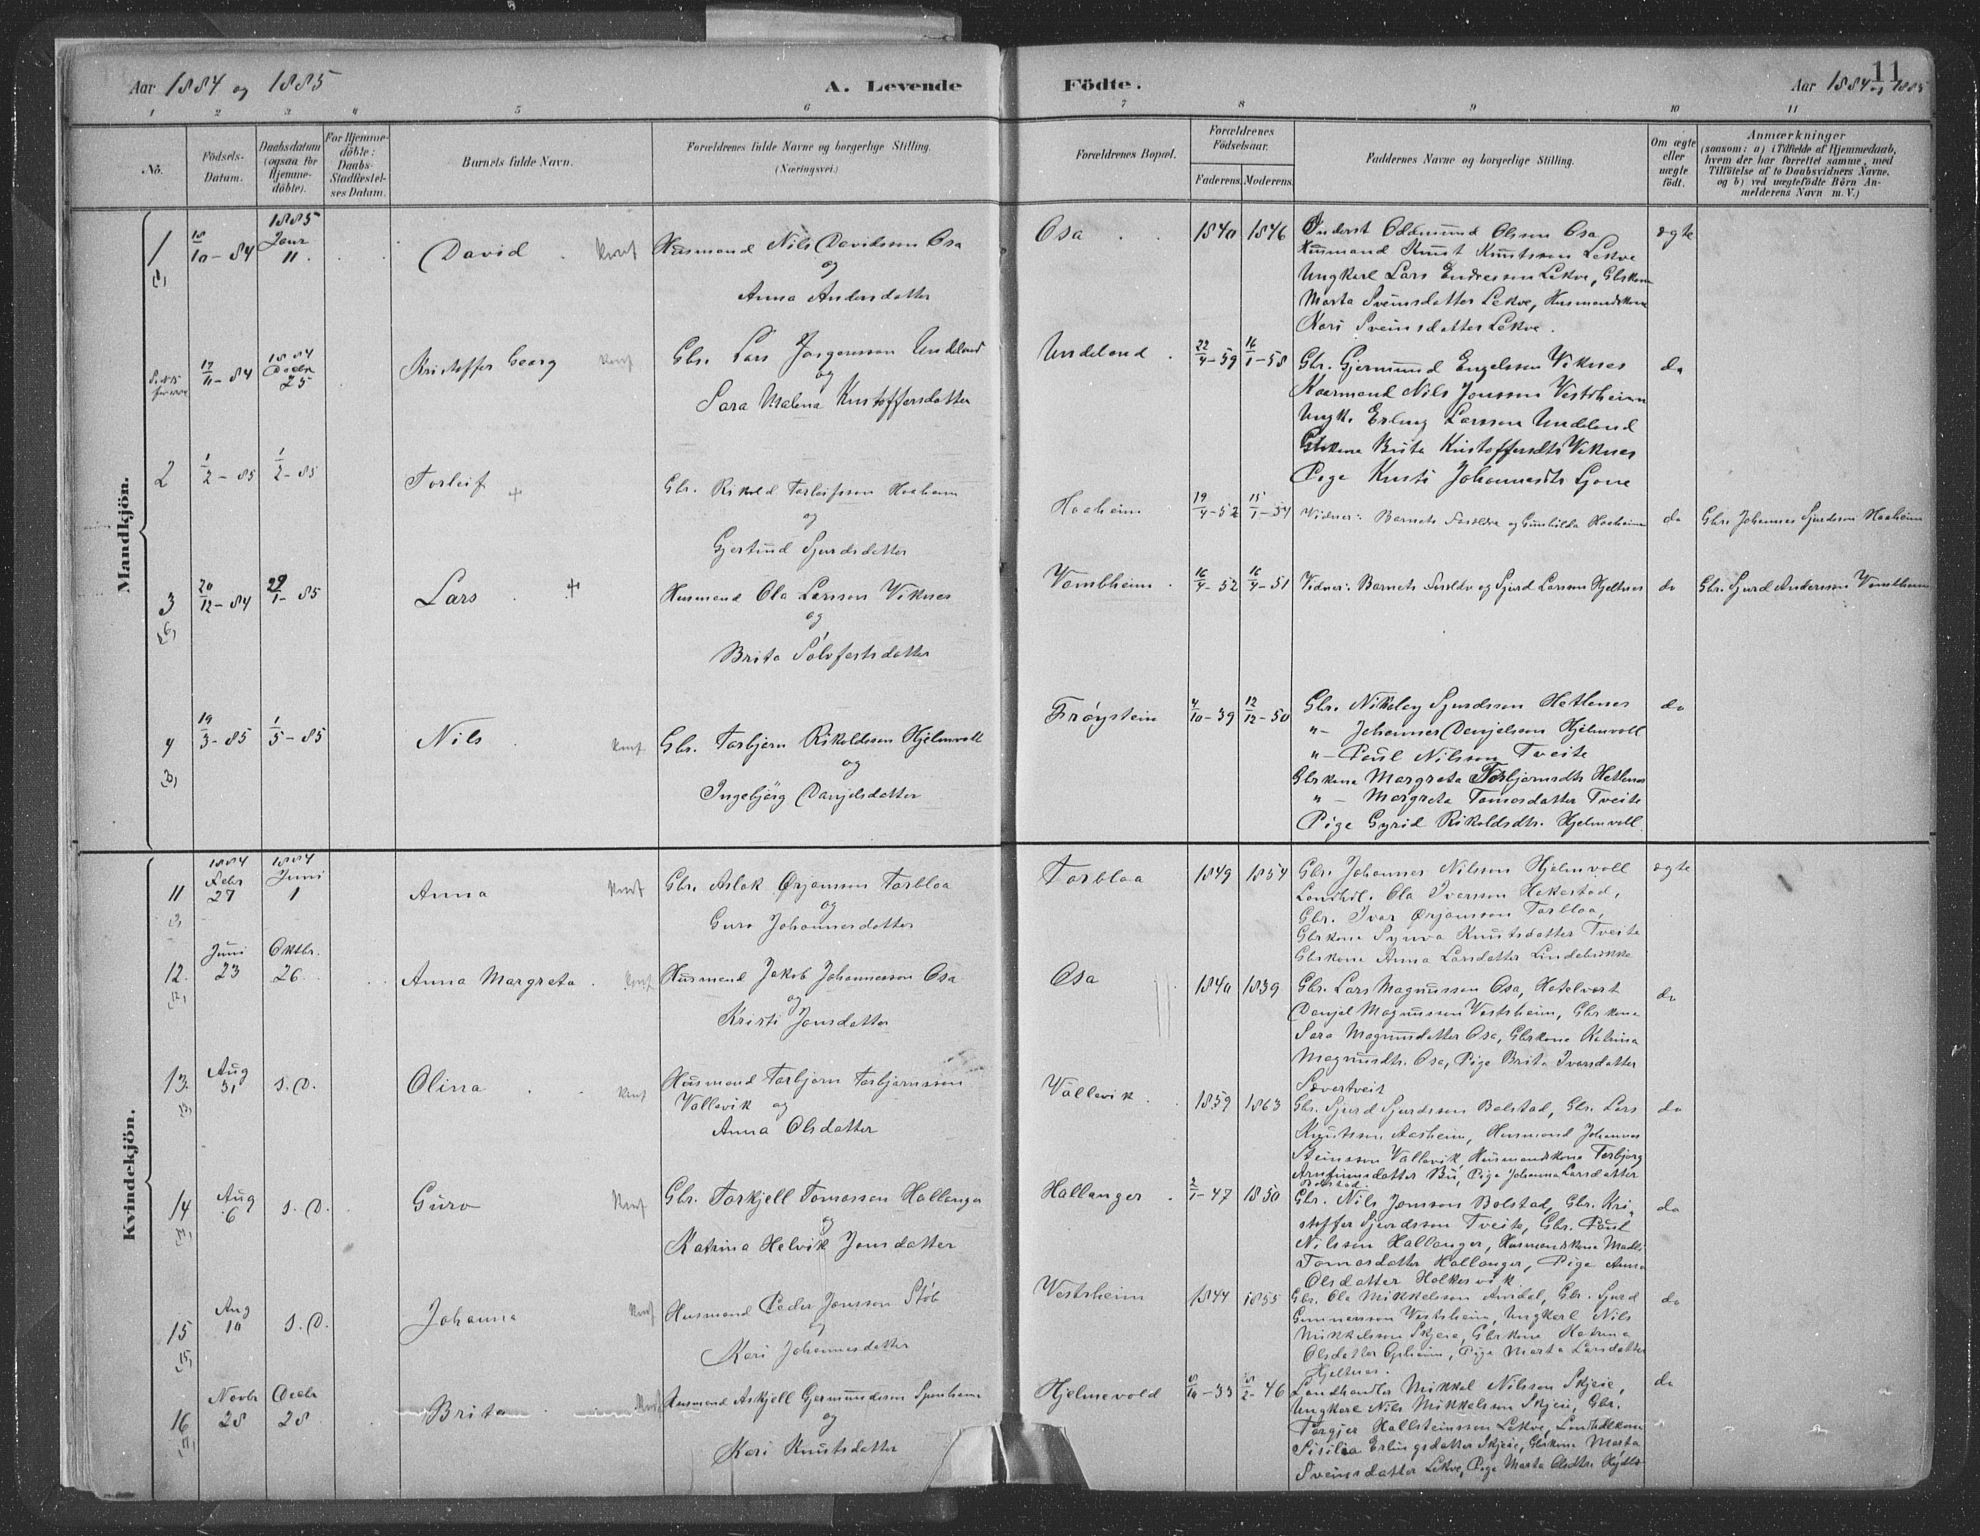 11
Aar 1884 og 1885 A. Levende Födte. Aar 1884 og 1885
1 2 3 4 5 6 7 8 9 10 11
No.
Födsels-Datum.
Daabsdatum (ogsaa for Hjemme-döbte).
For Hjemme-döbte: Daabs-Stadfæstel-ses Datum.
Barnets fulde Navn.
Forældrenes fulde Navne og borgerlige Stilling. (Næringsvei.)
Forældrenes Bopæl.
Forældrenes Födselsaar.
Faderens. Moderens.
Faddernes Navne og borgerlige Stilling.
Om ægte eller uægte födt.
Anmærkninger
(saasom: a) i Tilfælde af Hjemmedaab,
hvem der har forrettet samme, med
Tilföielse af to Daabsvidners Navne,
og b) ved uægtefödte Börn An-
melderens Navn m. V.)
Mandkjön.
1 18/10-84 1885 Janr 11. David konf Husmand Nils Davidson Osa
og
Anna Andersdatter
Osa 1840 1846 Inderst Oddmund Olsson Osa ægte
Husmand Knut Knutsson Lekve
Ungkarl Lars Endresson Lekve, Gbrkone
Marta Sveinsdatter Lekve, Husmandskone
Kari Sveinsdatter Lekve.
17/11-84 1884 Decbr 25 Kristoffer Georg konf Gbr. Lars Jørgensson Undeland
og
Sara Malena Kristoffersdatter
Undeland 22/4-59 16/1-58 Gbr. Gjermund Engelsson Viknes do
Kaarmand Nils Jonsson Vestrheim
Ungk. Erling Larsson Undeland
Gbrkone Brita Kristoffersdtr Viknes
Pige Kristi Johannesdtr Ljone
2 1/2-85 1/2-85 Torleif + Gbr. Rikold Torleifsson Haaheim
og
Gjertrud Sjurdsdatter
Haaheim 19/4-52 15/1-54 Vidner: Barnets Foreldre og Gunhilda Haaheim do Gbr. Johannes Sjurdson Haaheim
3 20/12-84 29/1-85 Lars + Husmand Ola Larsson Viknes
og
Brita Sölvfestsdatter
Vambheim 16/4-52 16/4-51 Vidner: Barnets Foreldre og Sjurd Larsson Hjeltnes do Gbr. Sjurd Andersson Vambheim
4 19/3-85 1/5-85 Nils konf Gbr. Torbjørn Rikoldsson Hjelmvoll
og
Ingebjörg Danjelsdatter
Frøystein 4/10-39 12/12-50 Gbr. Nikolay Sjurdsson Hetlenes do
"- Johannes Danjelson Hjelmvoll
"- Paul Nilsson Tveite
Gbrkone Margreta Torbjørnsdtr Hetlenes
"- Margreta Tomasdatter Tveite
Pige Gyrid Rikoldsdtr. Hjelmvoll
Kvindekjön.
11 1884 Febr 27 1884 Juni 1 Anna konf Gbr. Aslak Ørjansson Torbloa
og
Guro Johannesdatter
Torbloa 1849 1854 Gbr. Johannes Nilsson Hjelmvoll ægte
Ola Iversson Hakestad,
Gbr. Ivar Ørjansson Torbloa,
Gbrkone Synva Knutsdatter Tveite
Gbrkone Anna Larsdatter Lindebrekke
12. Juni 23 Oktbr. 26 Anna Margreta konf Husmand Jakob Johannesson Osa
og
Kristi Jonsdatter
Osa 1840 1839 Gbr. Lars Magnusson Osa, Hotelvert do
Danjel Magnusson Vestrheim, Gbrkone
Sara Magnusdatter Osa, Gbrkone Katrina
Magnusdtr. Osa, Pige Brita Ivarsdatter
Sævertveit
13. Aug 31 s. D. Olina konf Husmand Torbjørn Torbjørnsson
Vallevik og
Anna Olsdatter
Vallevik 1859 1863 Gbr. Sjurd Sjurdsson Bolstad, Gbr. Lars do
Knutsson Aasheim, Husmand Johannes
Steinsson Vallevik, Husmandskone Torbjørg
Arnfinnsdatter Bu, Pige Johanna Larsdatter
Bolstad.
14 Aug 6 s. D. Guro konf Gbr. Torkjell Tomasson Hallanger
og
Katrina Helvik Jonsdatter
Hallanger 2/1-47 1850 Gbr. Nils Jonsson Bolstad, Gbr. Kri- do
stoffer Sjurdsson Tveite, Gbr. Paul
Nilsson Hallanger, Husmandskone Madli
Tomasdatter Hallanger, Pige Anna
Olsdatter Holkesvik.
15 Aug 10 s. D. Johanna konf Husmand Peder Jonsson Stöb
og
Kari Johannesdatter
Vestrheim 1844 1855 Gbr. Ola Mikkelsson Aurdal, Gbr. Sjurd do
Gunnarsson Vestrheim, Ungkarl Nils
Mikkelsson Skjeie, Gbrkone Katrina
Olsdatter Opheim, Pige Marta Larsdatter
Hjeltnes.
16 Novbr 28 Decbr 28 Brita konf Husmand Askjell Germundsson Sponheim
og
Kari Knutsdatter
Hjelmevold 5/10-33 8/2-46 Landhandler Mikkel Nilsson Skjeie, do
Ungkarl Nils Mikkelsson Skjeie, Gbr.
Torgjer Hallsteinsson Lekve, Landhdlkone
Sisilia Erlingsdatter Skjeie, Gbrkone Marta
Sveinsdatter Lekve, Pige Marta Olsdtr.